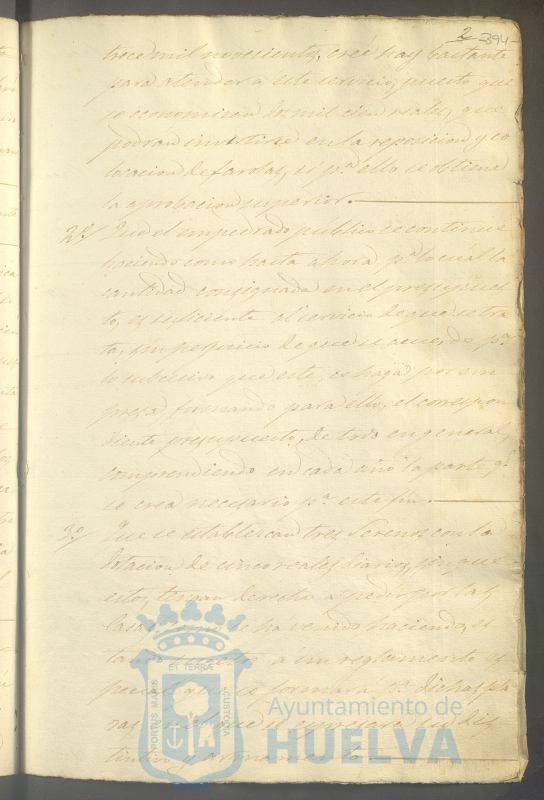 2 394
trece mil novecientos, creé hay bastante
para atender a este servicio, puesto que
se economizan dos mil cien reales, que
podrán invertirse en la reposicion y co
locacion de farolas, si pª ello se obtiene
la aprobacion superior.
2º/ Que el empedrado publico se continue
haciendo como hasta ahora, pª lo cuál la
cantidad consignada en el presupues
to, es suficiente al servicio de que se tra
ta; sin perjuicio de que se acuerde pª
lo subcesivo que este, se haga por em
presa, formando para ello, el correspon
diente presupuesto, de todo en general,
comprendiendo en cada año la parte qº
se crea necesario pª este fin.
3º/ Que se establezcan tres Serenos con la
dotacion de cinco reales diarios, sin que
estos, tengan derecho a pedir por las
casas como se ha venido haciendo, es
tando sujetos á un reglamento es
pecial que se formará pª dichas pla
zas, en el que se espresará su dis
tintivo y armamento.
PORTUS MARIS ET TERRÆ CUSTODIA
Ayuntamiento de
HUELVA